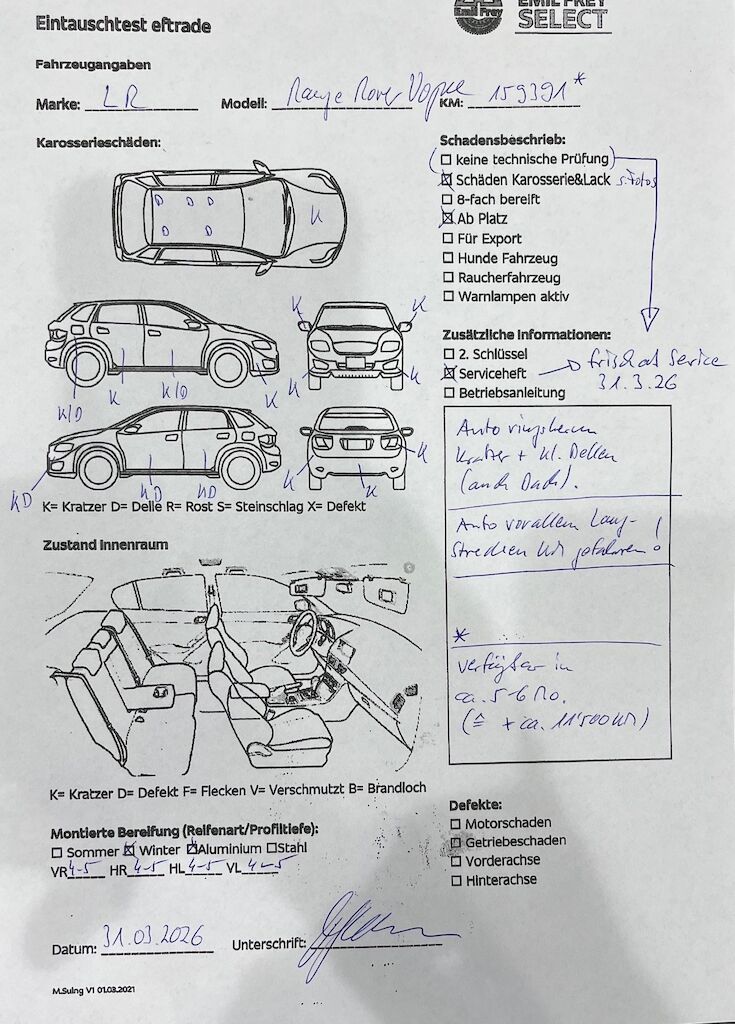 Eintauschtest eftrade
Emil Frey
EMIL FREY
SELECT
Fahrzeugangaben
Marke: LR Modell: Range Rover Vogue KM: 159391*
Karosserieschäden:
D D D
D D
K
K K
K/D K K/D K
K K
KD KD KD
K K
K
K= Kratzer D= Delle R= Rost S= Steinschlag X= Defekt
Schadensbeschrieb:
(☐ keine technische Prüfung)
☒ Schäden Karosserie&Lack s. Fotos
☐ 8-fach bereift
☒ Ab Platz
☐ Für Export
☐ Hunde Fahrzeug
☐ Raucherfahrzeug
☐ Warnlampen aktiv
Zusätzliche Informationen:
☐ 2. Schlüssel
☒ Serviceheft → frisch ab Service
31.3.26
☐ Betriebsanleitung
Auto ringsherum
Kratzer + kl. Dellen
(auch Dach).
Auto vorallem Lang-
strecken km gefahren!
*
Verfügbar in
ca. 5-6 Mo.
(≙ + ca. 11'500 km)
Zustand Innenraum
K= Kratzer D= Defekt F= Flecken V= Verschmutzt B= Brandloch
Montierte Bereifung (Reifenart/Profiltiefe):
☐ Sommer ☒ Winter ☒ Aluminium ☐ Stahl
VR 4-5 HR 4-5 HL 4-5 VL 4-5
Defekte:
☐ Motorschaden
☐ Getriebeschaden
☐ Vorderachse
☐ Hinterachse
Datum: 31.03.2026 Unterschrift:
M.Suing V1 01.03.2021